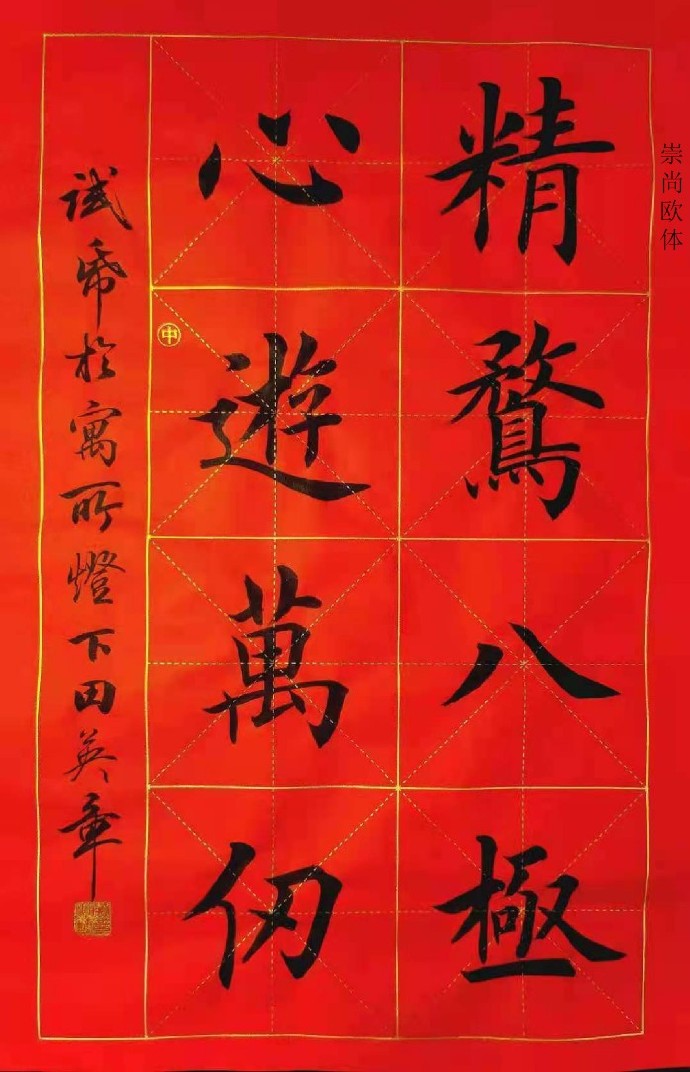 精鶩八極
心遊萬仞
試帋於寓所燈下田英章
崇尚欧体
中